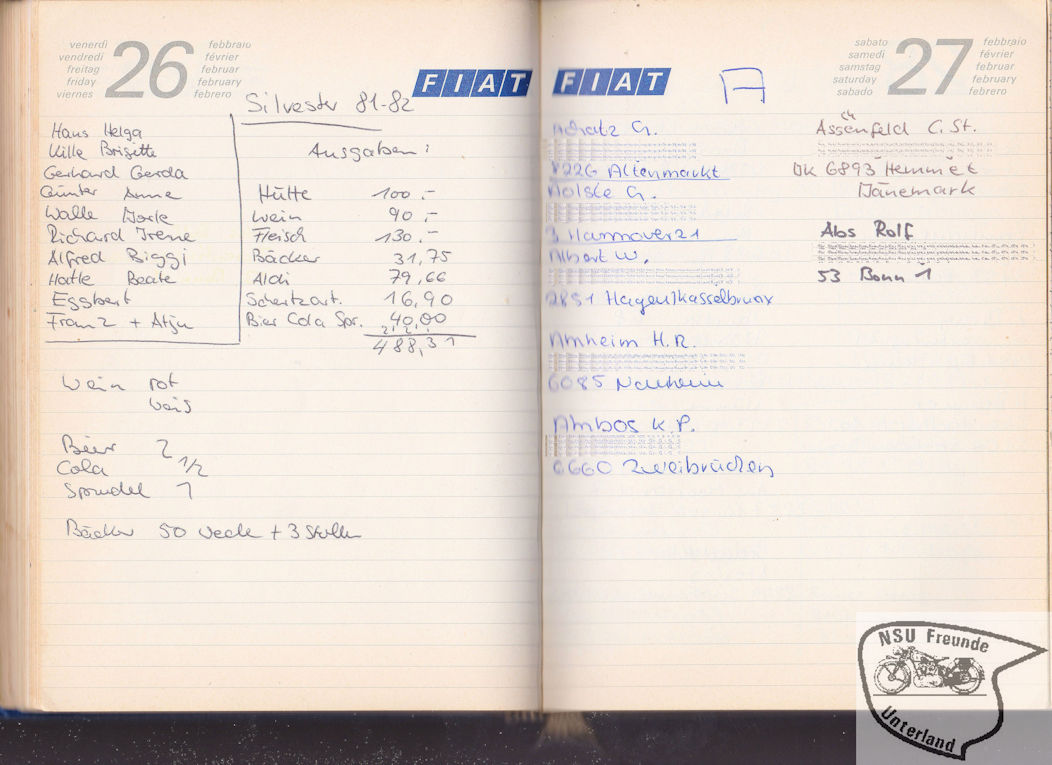 venerdì
vendredi
freitag
friday
viernes
26
febbraio
février
februar
february
febrero
FIAT
Silvester 81-82
Hans Helga
Wille Brigitte
Gerhard Gerda
Günter Anne
Walle Dorle
Richard Irene
Alfred Biggi
Hartle Beate
Eggbert
Franz + Atju
Ausgaben:
Hütte 100.-
Wein 90,-
Fleisch 130.-
Bäcker 31,75
Aldi 79,66
Schertzart. 16,90
Bier Cola Spr. 40,00
2 2 1
488,31
Wein rot
weis
Bier 2
Cola 1/2
Sprudel 1
Bäcker 50 Weck + 3
FIAT
A
sabato
samedi
samstag
saturday
sabado
27
febbraio
février
februar
february
febrero
Achatz G.
8226 Altenmarkt
Aolske G.
3 Hannover 21
Albert W.
2851 Hagen/Kasselbruax
Amheim H.R.
6085 Nauheim
Ambos K.P.
6660 Zweibrücken
Assenfeld C. St.
DK 6893 Hemmet
Dänemark
Abs Rolf
53 Bonn 1
NSU Freunde
Unterland